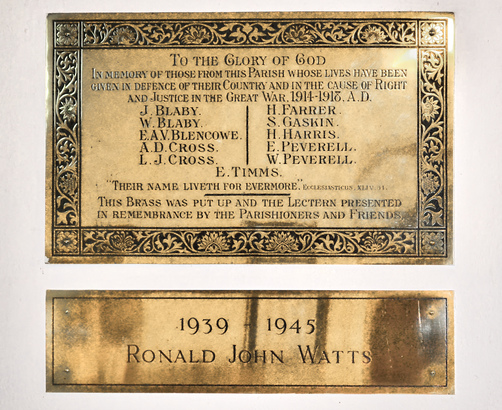 TO THE GLORY OF GOD
IN MEMORY OF THOSE FROM THIS PARISH WHOSE LIVES HAVE BEEN
GIVEN IN DEFENCE OF THEIR COUNTRY AND IN THE CAUSE OF RIGHT
AND JUSTICE IN THE GREAT WAR, 1914-1918, A.D.
J. BLABY. H. FARRER.
W. BLABY. S. GASKIN.
E.A.V. BLENCOWE. H. HARRIS.
A.D. CROSS. E. PEVERELL.
L.J. CROSS. W. PEVERELL.
E. TIMMS.
"THEIR NAME LIVETH FOR EVERMORE." ECCLESIASTICUS, XLIV.
THIS BRASS WAS PUT UP AND THE LECTERN PRESENTED
IN REMEMBRANCE BY THE PARISHIONERS AND FRIENDS.
1939 - 1945
RONALD JOHN WATTS